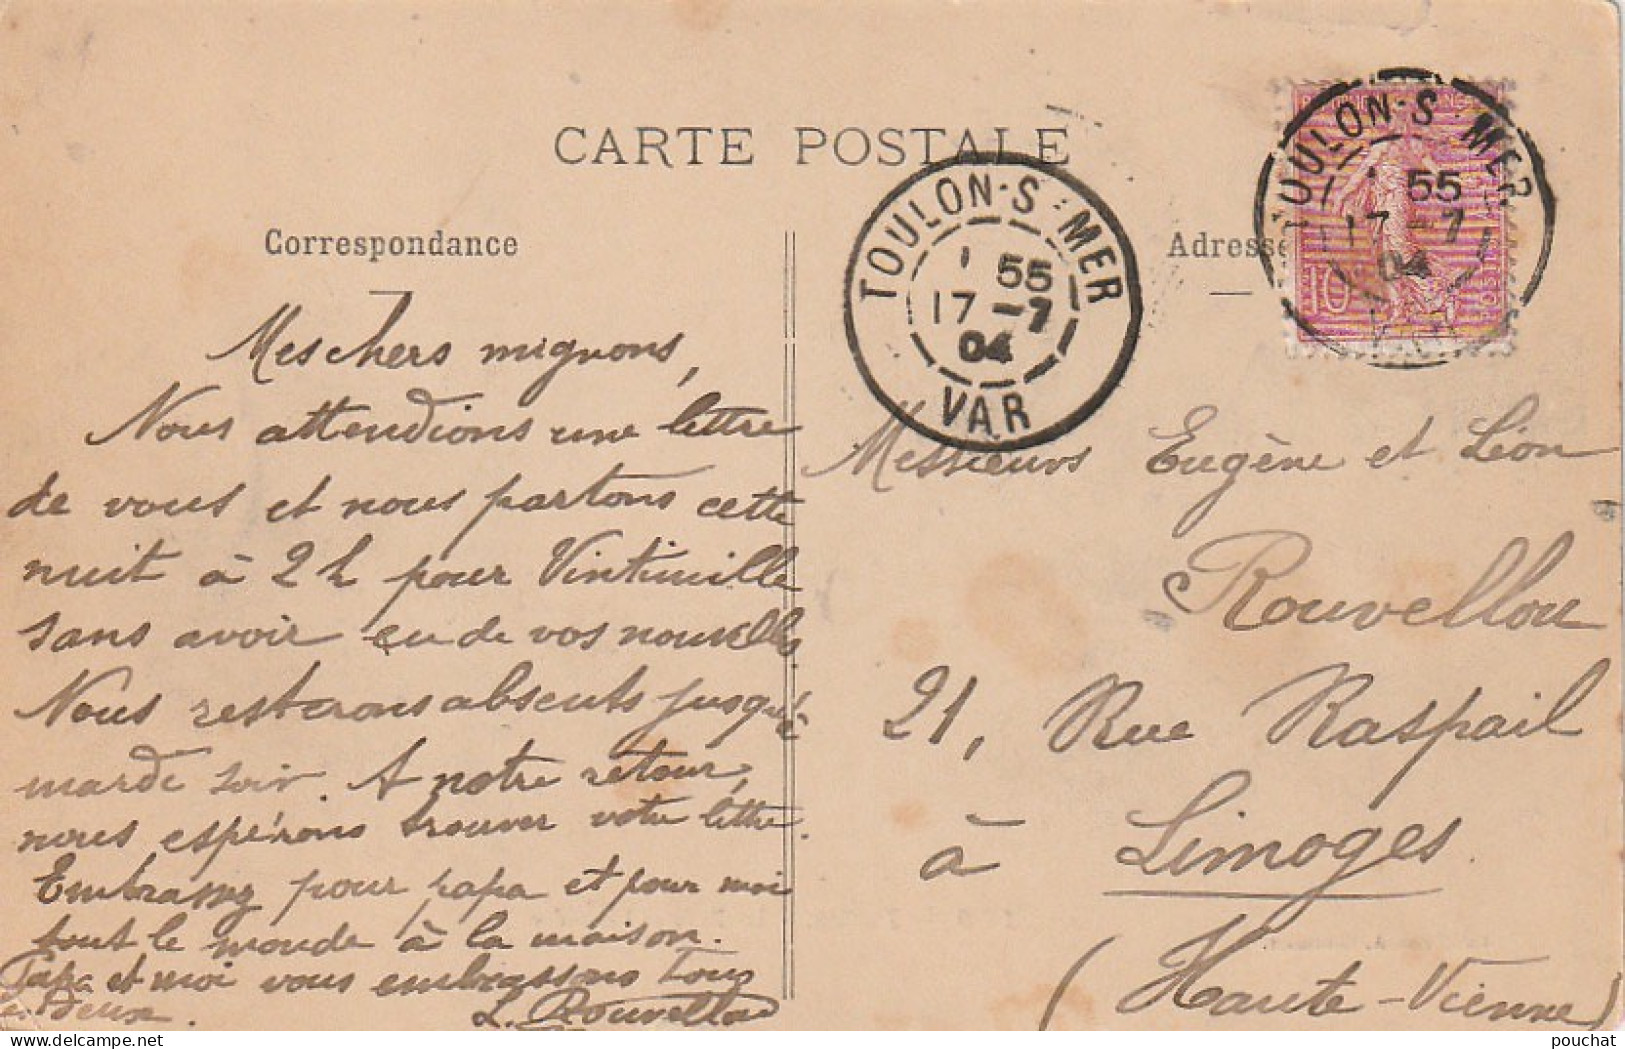 CARTE POSTALE
Correspondance
Mes chers mignons,
Nous attendions une lettre
de vous et nous partons cette
nuit à 2 h pour Vintimille
sans avoir eu de vos nouvelles.
Nous resterons absents jusqu'à
mardi soir. A notre retour,
nous espérons trouver votre lettre.
Embrassez pour papa et pour moi
tout le monde à la maison.
Papa et moi vous embrassons tous
deux.
L. Rouvellou
TOULON-S-MER
1 55
17 -7
04
VAR
Adresse
TOULON-S-MER
1 55
17 -7
04
10
Messieurs Eugène et Léon
Rouvellou
21, Rue Raspail
à Limoges.
(Haute-Vienne)
pouchat